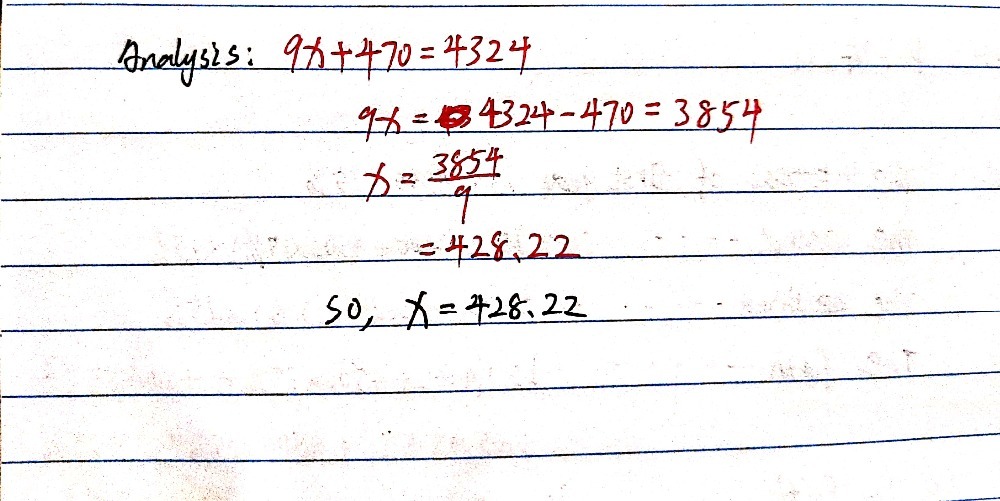 Analysis: 9x+470=4324
9x = 4324-470 = 3854
x = 3854/9
= 428.22
so, x = 428.22